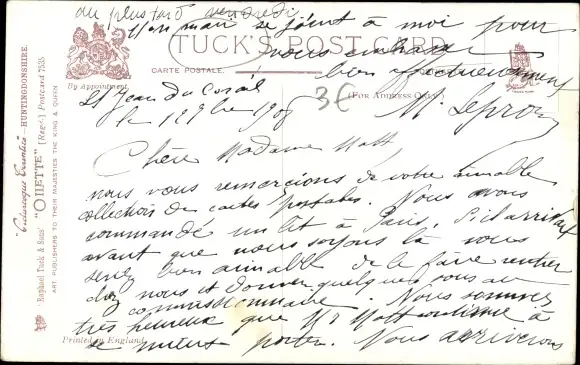 au plus tard vendredi
Mon mari se joint à moi pour
vous embrasser
bien affectueusement
TUCK'S POST CARD
CARTE POSTALE.
(FOR ADDRESS ONLY.)
By Appointment.
St Jean du
le 1908
3€
Chère Madame Matt
nous vous remercions de votre aimable
collection de cartes postales. Nous avons
commandé un lit à Paris, s'il arrivait
avant que nous soyons là vous
serez bien aimable de le faire rentrer
chez nous et donner quelques sous au
commissionnaire. Nous sommes
très heureux que Mr Matt continue à
se mieux porter. Nous arriverons
"Picturesque Counties" — HUNTINGDONSHIRE.
Raphael Tuck & Sons' "OILETTE" [Regd.] Postcard 7535
ART PUBLISHERS TO THEIR MAJESTIES THE KING & QUEEN
Printed in England.